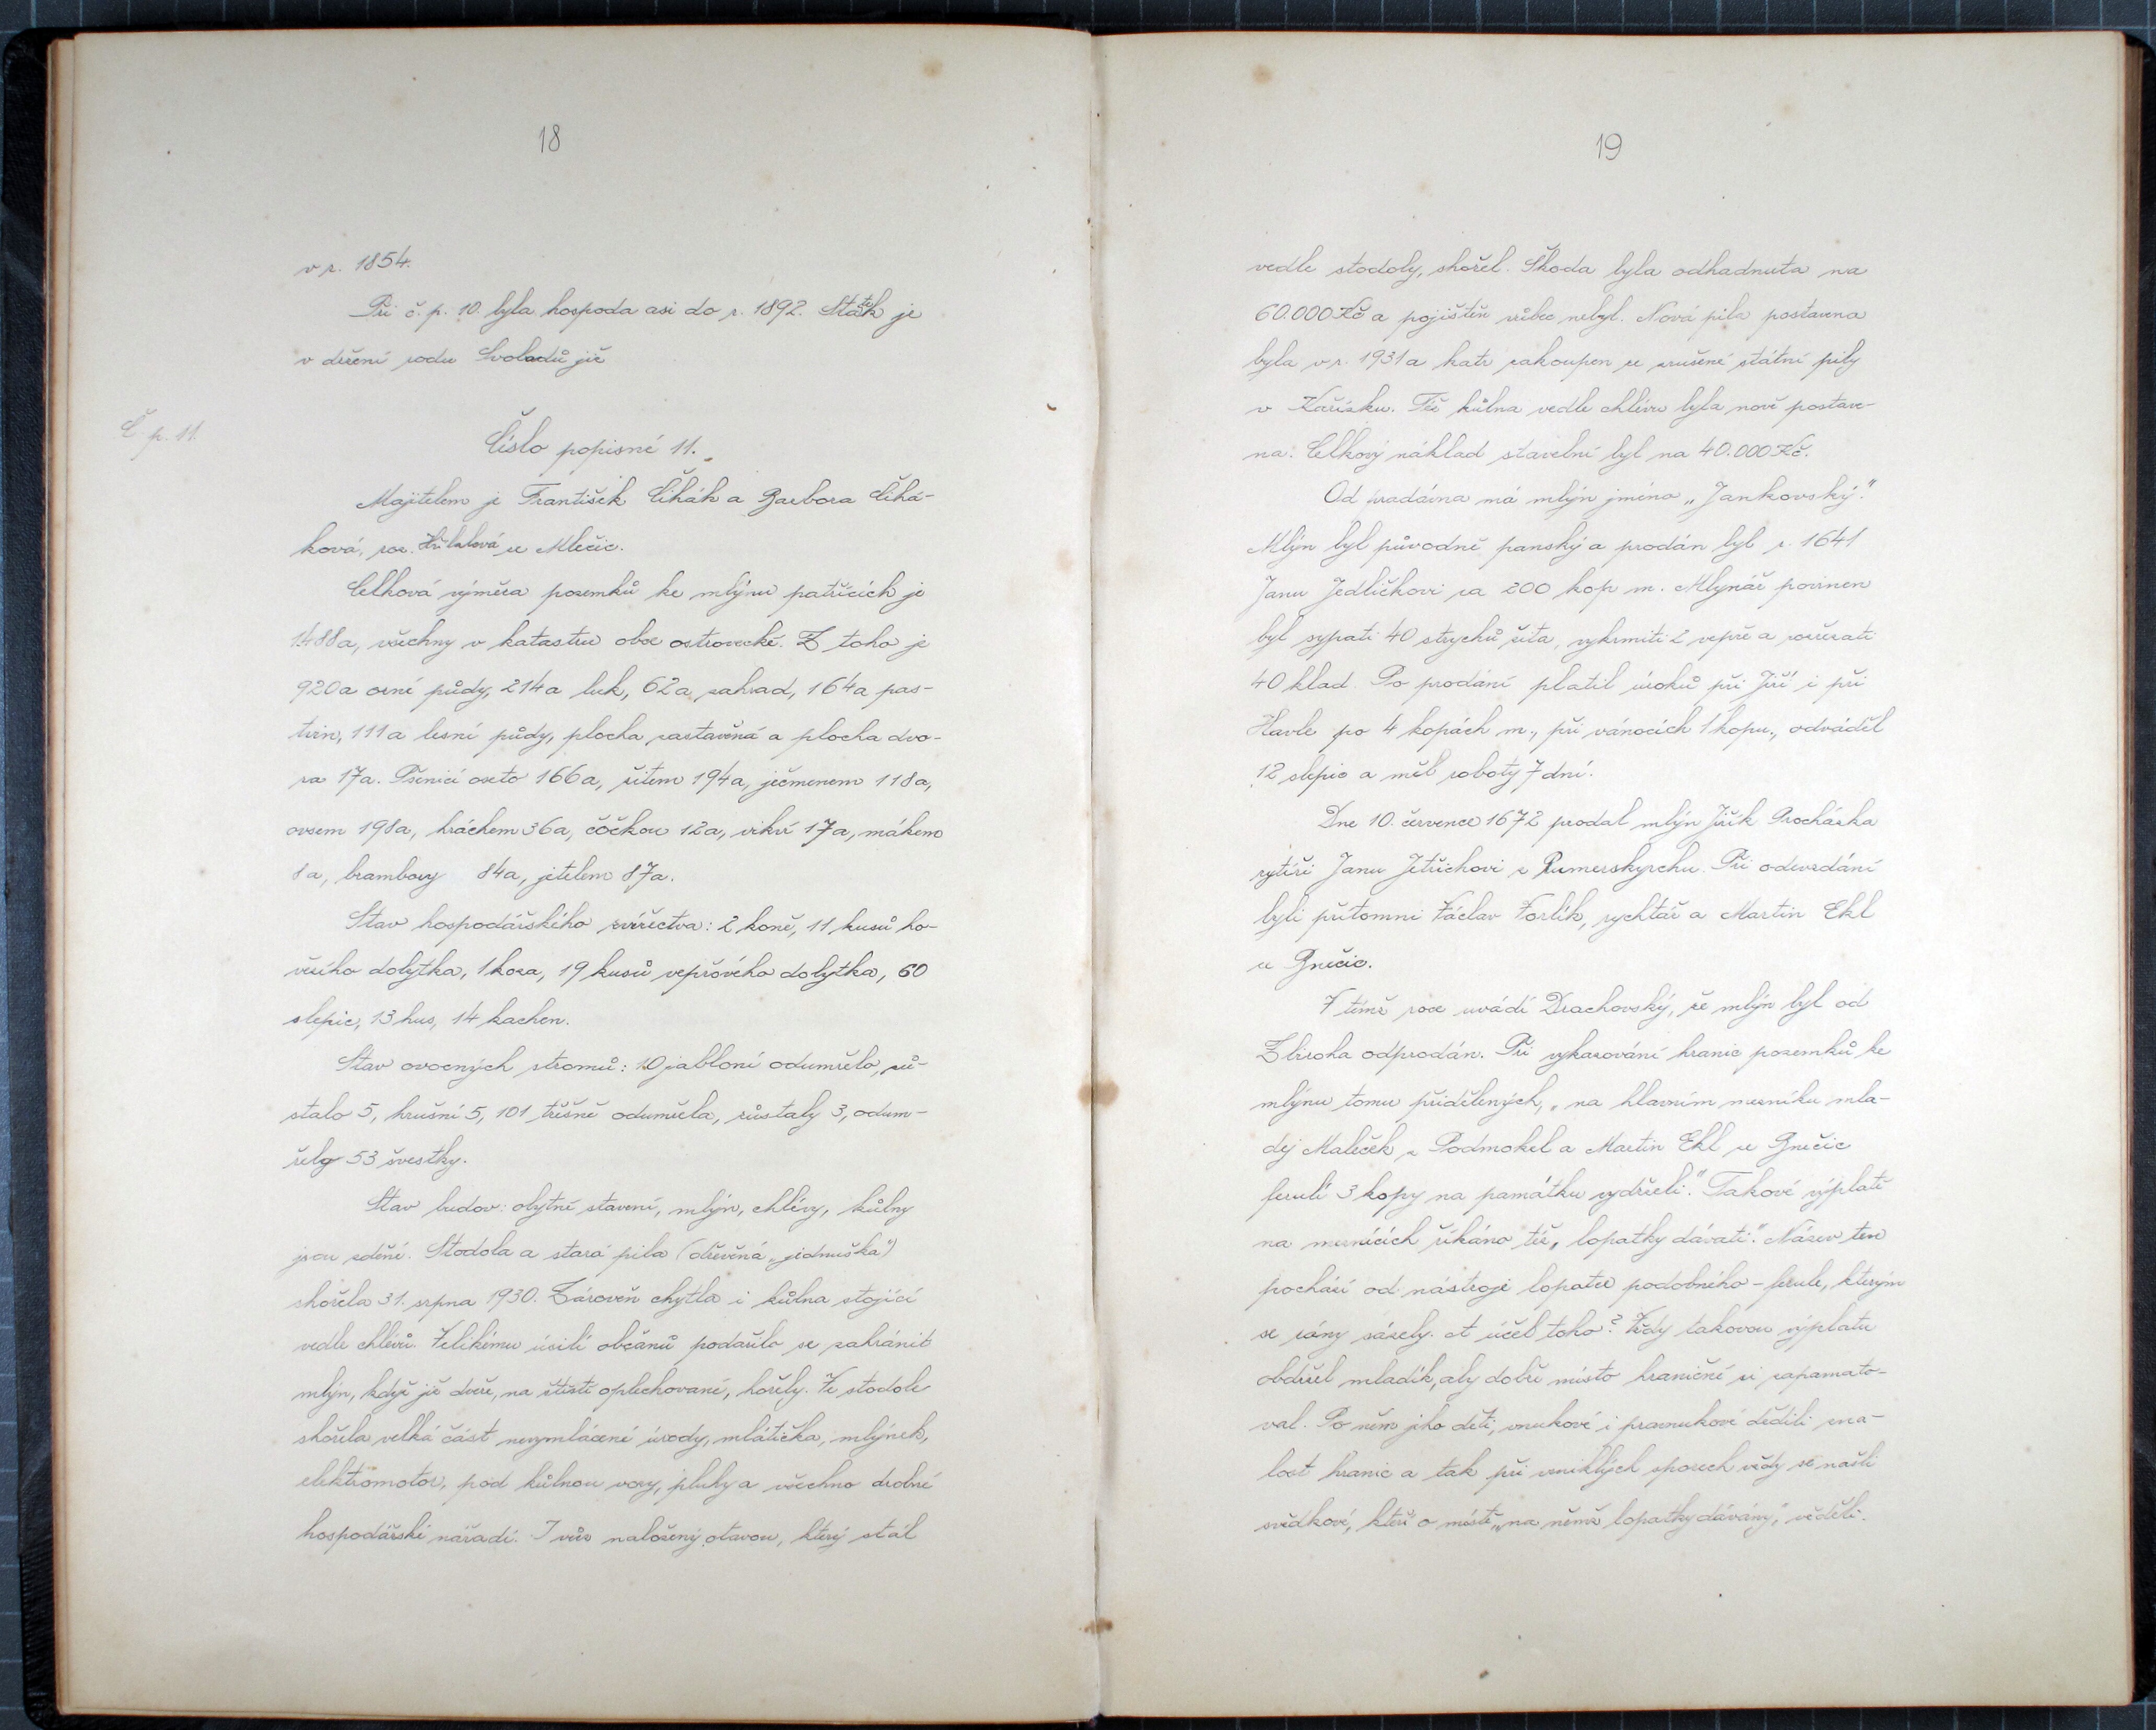 18
v r. 1854.
Při č. p. 10. byla hospoda asi do r. 1892. Statek je
v držení rodu Svobodů již
Č p. 11.
Číslo popisné 11.
Majitelem je František Čihák a Barbora Čihá-
ková, roz. ze Mlečic.
Celková výměra pozemků ke mlýnu patřících je
1488a, všechny v katastru obce ostrovecké. Z toho je
920a orné půdy, 214a luk, 62a zahrad, 164a pas-
tvin, 111a lesní půdy, plocha zastavěná a plocha dvo-
ra 17a. Pšenicí oseto 166a, žitem 194a, ječmenem 118a,
ovsem 198a, hráchem 36a, čočkou 12a, vikví 17a, mákem
8a, brambory 84a, jetelem 87a.
Stav hospodářského zvířectva: 2 koně, 11 kusů ho-
vězího dobytka, 1 koza, 19 kusů vepřového dobytka, 60
slepic, 13 hus, 14 kachen.
Stav ovocných stromů: 10 jabloní odumřelo, zů-
stalo 5, hrušní 5, 101 třešně odumřela, zůstaly 3, odum-
řely 53 švestky.
Stav budov: obytné stavení, mlýn, chlévy, kůlny
jsou zděné. Stodola a stará pila (dřevěná „jednuška")
shořela 31. srpna 1930. Zároveň chytla i kůlna stojící
vedle chlévů. Velikému úsilí občanů podařilo se zahránit
mlýn, když již dveře, na štěstí oplechované, hořely. Ve stodole
shořela velká část nevymlácené úrody, mlátička, mlýnek,
elektromotor, pod kůlnou vozy, pluhy a všechno drobné
hospodářské nářadí. I vůz naložený otavou, který stál
19
vedle stodoly, shořel. Škoda byla odhadnuta na
60.000 Kč a pojištěn vůbec nebyl. Nová pila postavena
byla v r. 1931 a katr zakoupen ze zrušené státní pily
v Kařízku. Též kůlna vedle chlévu byla nově postave-
na. Celkový náklad stavební byl na 40.000 Kč.
Od pradávna má mlýn jméno „Jankovský."
Mlýn byl původně panský a prodán byl r. 1641
Janu Jedličkovi za 200 kop m. Mlynář povinen
byl sypati 40 strychů žita, vykrmiti 2 vepře a rozřezati
40 klad. Po prodání platil úroků při Jiří i při
Havle po 4 kopách m., při vánocích 1 kopu, odváděl
12 slepic a měl roboty 7 dní.
Dne 10. července 1672 prodal mlýn Jiřík Procházka
rytíři Janu Jetřichovi z Rumerskyrchu. Při odevzdání
byli přítomni Václav Forlík, rychtář a Martin Ekl
ze Gnečic.
V témž roce uvádí Drachovský, že mlýn byl od
Zbiroha odprodán. Při vykazování hranic pozemků ke
mlýnu tomu přidělených, „na hlavním mezníku mla-
dej Maleček z Podmokel a Martin Ekl ze Gnečic
ferulí 3 kopy na památku vydrželi." Takové výplatě
na meznících říkáno též „lopatky dávati". Název ten
pochází od nástroje lopatce podobného - ferule, kterým
se rány sázely. A účel toho? Vždy takovou výplatu
obdržel mladík, aby dobře místo hraniční si zapamato-
val. Po něm jeho děti, vnukové i pravnukové dědili zna-
lost hranic a tak při vzniklých sporech vždy se našli
svědkové, kteří o místě, „na němž lopatky dávány," věděli.